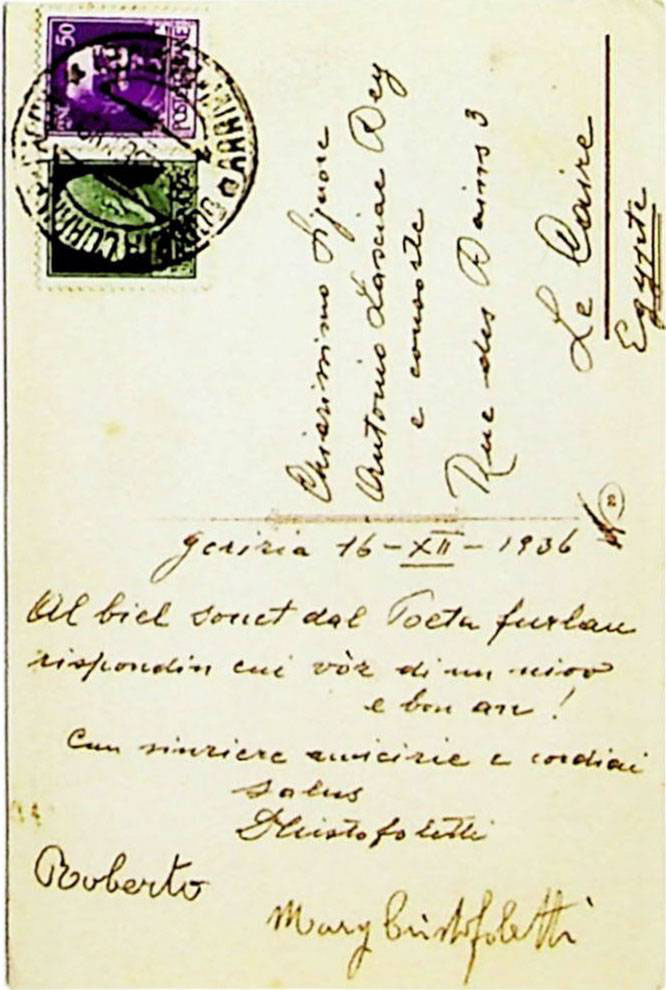 50
POSTE ITALIANE
Chiarissimo Signore
Antonio Lasciac Bey
e consorte
Rue des Bains 3
Le Caire
Egypte
Gorizia 16-XII-1936
Al biel sonet dal Poeta furlan
rispondin cui vòz di un niov
e bon an!
Cun sinziere amicizie e cordiai
salus
Cristofoletti
Roberto
Mary Cristofoletti